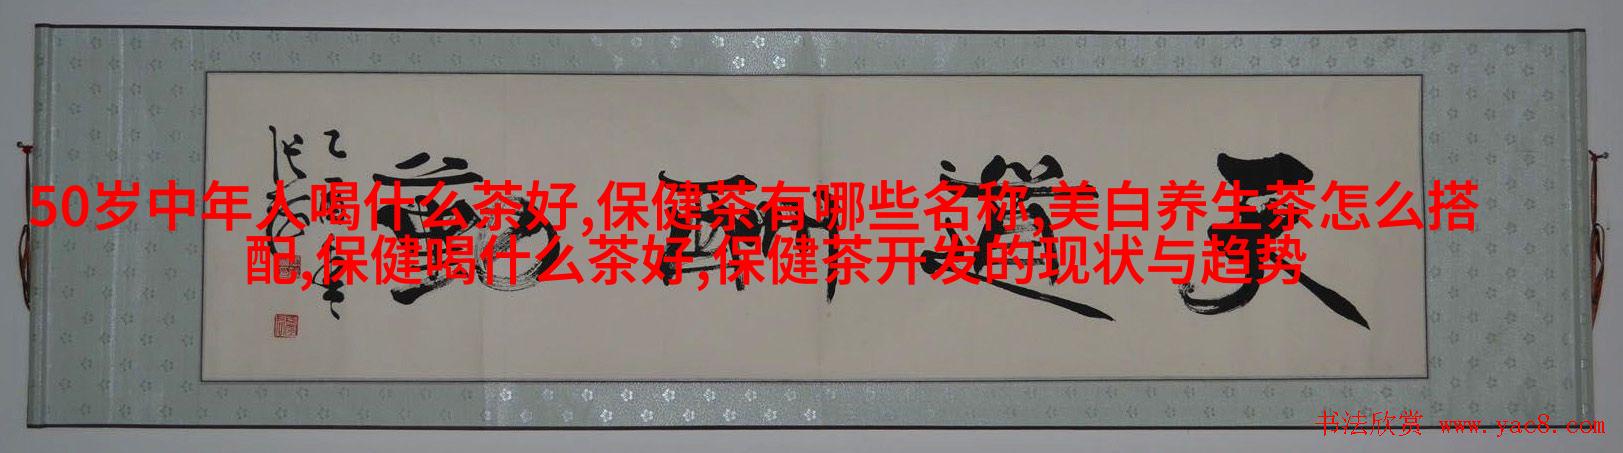 50岁中年人喝什么茶好,保健茶有哪些名称,美白养生茶怎么搭
配,保健喝什么茶好,保健茶开发的现状与趋势
天道酬勤
书法欣赏 www.yac8.com